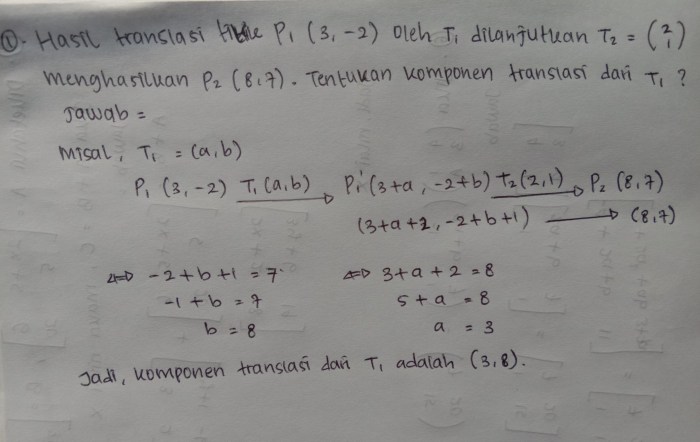 ①. Hasil translasi titik P₁ (3, -2) oleh T₁ dilanjutkan T₂ = (2 1)
menghasilkan P₂ (8,7). Tentukan komponen translasi dari T₁ ?
Jawab =
Misal, T₁ = (a,b)
P₁ (3, -2) T₁(a,b) → P₁'(3+a, -2+b) T₂(2,1) → P₂ (8,7)
(3+a+2, -2+b+1) → (8,7)
⇔ -2+b+1 = 7 ⇔ 3+a+2 = 8
-1+b = 7 5+a = 8
b = 8 a = 3
Jadi, komponen translasi dari T₁ adalah (3,8).